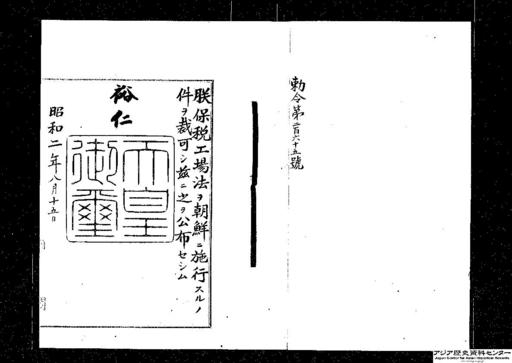 勅令第二百六十五號
朕保税工場法ヲ朝鮮ニ施行スルノ
件ヲ裁可シ茲ニ之ヲ公布セシム
裕仁
天皇
御璽
昭和二年八月十五日
アジア歴史資料センター
Japan Center for Asian Historical Records